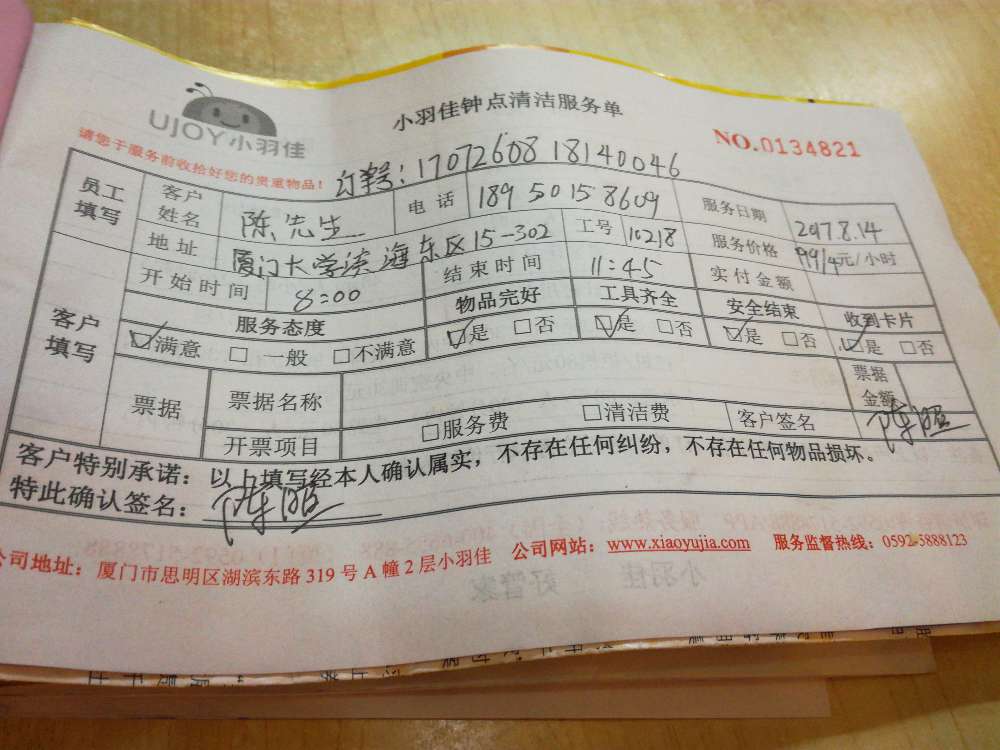 UJOY小羽佳
小羽佳钟点清洁服务单
NO.0134821
请您于服务前收拾好您的贵重物品!
订单号:1707260818140046
员工填写 客户姓名 陈先生 电话 18950158609 服务日期 2017.8.14
地址 厦门大学 海东区15-302 工号 10218 服务价格 99/4元/小时
客户填写 开始时间 8:00 结束时间 11:45 实付金额
服务态度 物品完好 工具齐全 安全结束 收到卡片
☑满意 □一般 □不满意 ☑是 □否 ☑是 □否 ☑是 □否 ☑是 □否
票据 票据名称 票据金额
开票项目 □服务费 □清洁费 客户签名
客户特别承诺:以上填写经本人确认属实,不存在任何纠纷,不存在任何物品损坏。
特此确认签名:
公司地址:厦门市思明区湖滨东路319号A幢2层小羽佳 公司网站:www.xiaoyujia.com 服务监督热线:0592-5888123